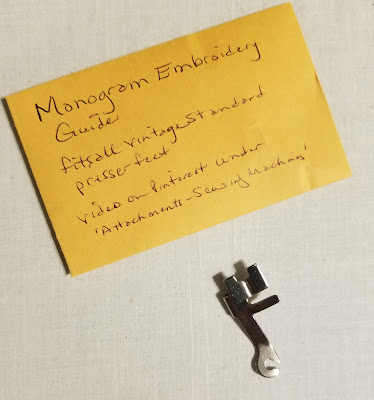 Monogram Embroidery
Guide
fits all vintage standard
presser feet
video on Pinterest under
'Attachments - Sewing Machines'